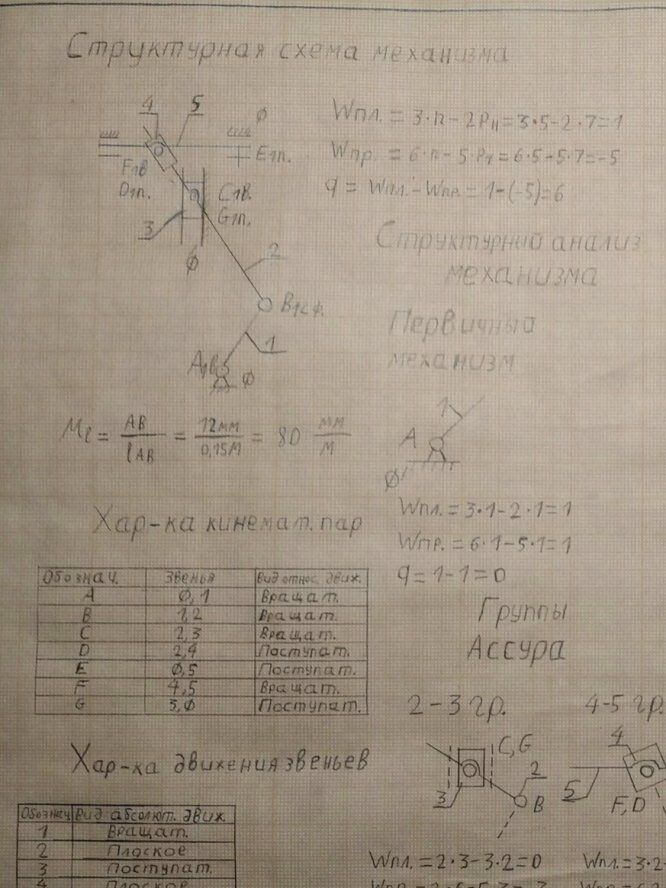 Структурная схема механизма
4 5 Ø
E1п.
F1в
D1п.
C1в.
G1п.
3
Ø
2
B1сф.
1
A1в
Ø
Wпл. = 3·n − 2P₁₁ = 3·5 − 2·7 = 1
Wпр. = 6·n − 5·P₁ = 6·5 − 5·7 = −5
q = Wпл. − Wпр. = 1 − (−5) = 6
Структурний анализ
механизма
Первичный
механизм
1
A
Ø
Wпл. = 3·1 − 2·1 = 1
Wпр. = 6·1 − 5·1 = 1
q = 1 − 1 = 0
Mℓ = AB / ℓAB = 12мм / 0,15м = 80 мм / м
Хар-ка кинемат. пар
Обознач. Звенья Вид относ. движ.
A Ø,1 Вращат.
B 1,2 Вращат.
C 2,3 Вращат.
D 2,4 Поступат.
E Ø,5 Поступат.
F 4,5 Вращат.
G 3,Ø Поступат.
Группы
Ассура
2-3 гр.
C,G
2
3
B
Wпл. = 2·3 − 3·2 = 0
4-5 гр.
4
5
F,D
Wпл. = 3·2
Хар-ка движения звеньев
Обознач Вид абсолют. движ.
1 Вращат.
2 Плоское
3 Поступат.
4 Плоское